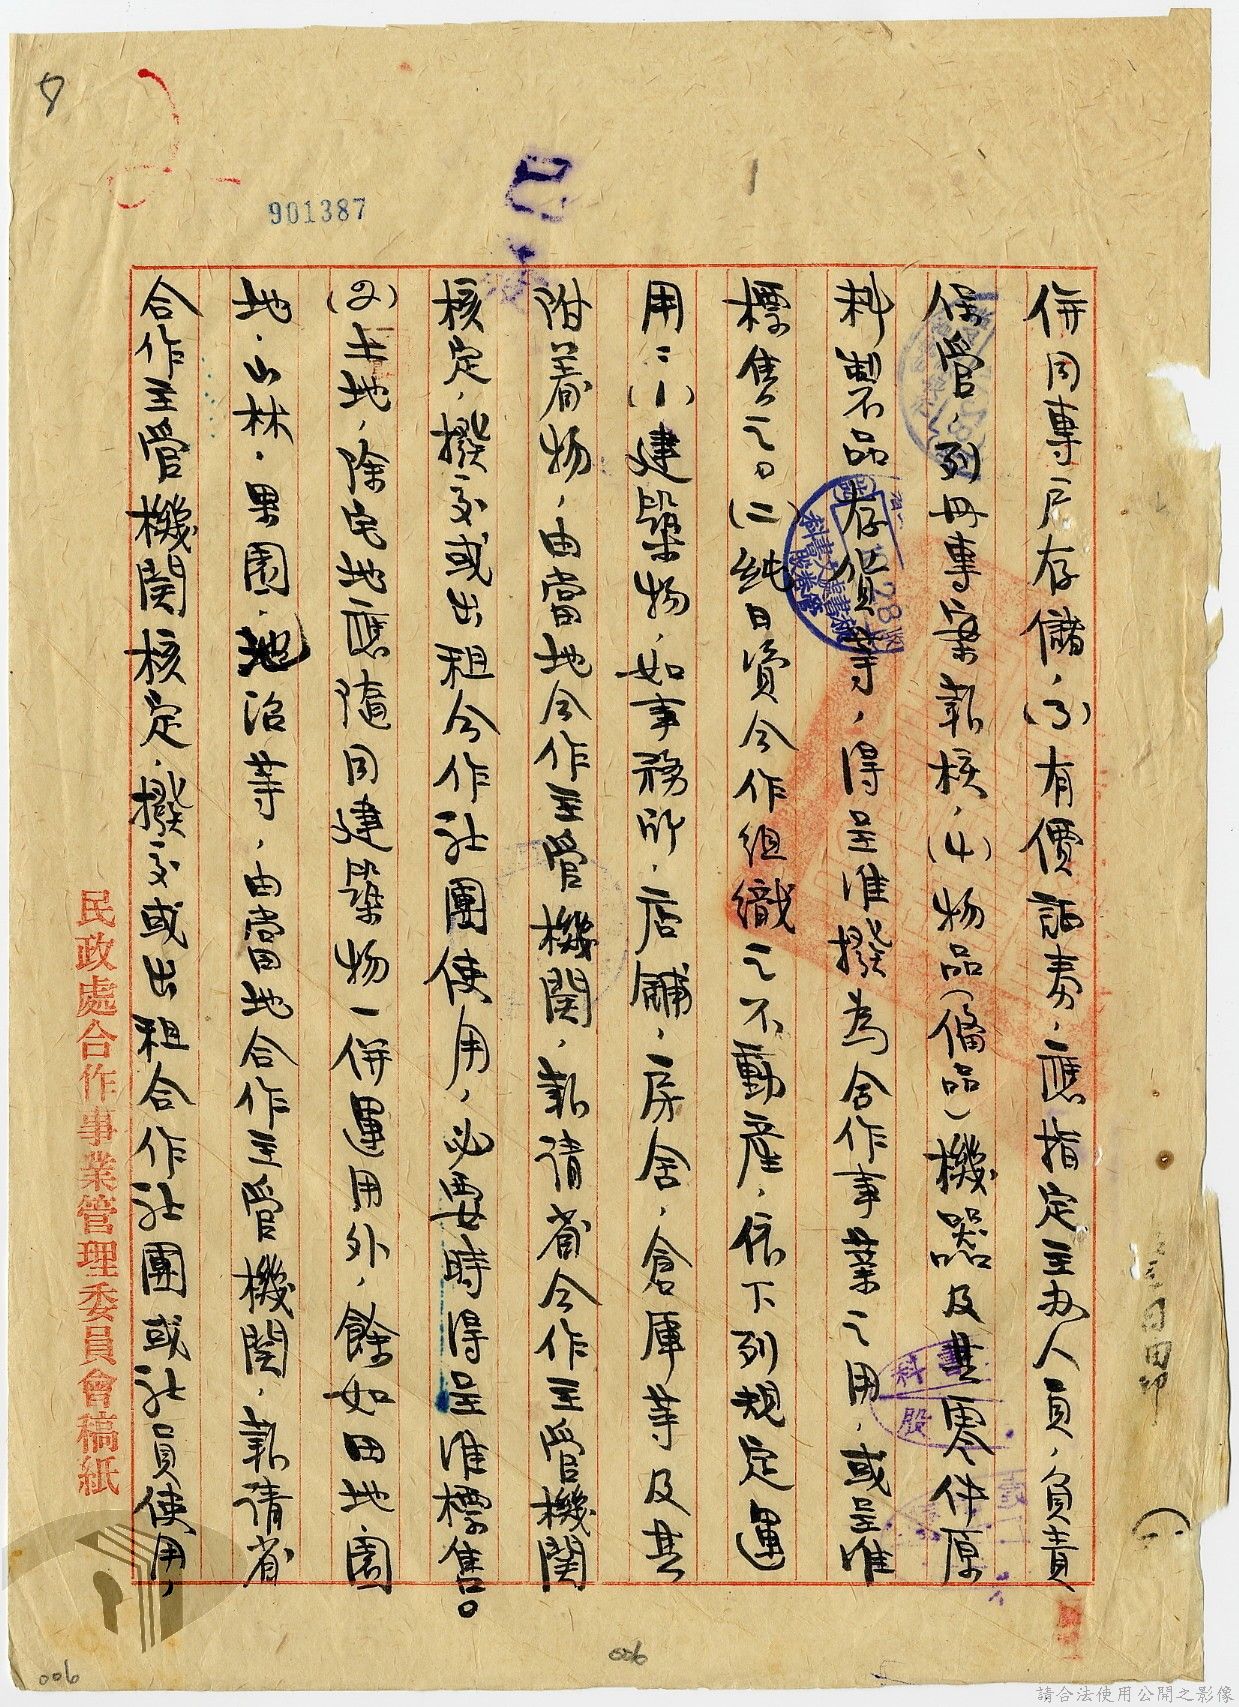 901387
併同專戶存儲，(3)有價証券，應指定主办人員，負責
保管，列冊專案報核，(4)物品(俻品)機器及其零件原
料製品存貨等，得呈准撥為合作事業之用，或呈准
標售之。(二)純日資合作組織之不動產，依下列規定運
用：(1)建築物，如事務所，店舖，房舍，倉庫等及其
附着物，由當地合作主管機関，報請省合作主管機関
核定，撥交或出租合作社團使用，必要時得呈准標售。
(2)土地，除宅地應隨同建築物一併運用外，餘如田地園
地．山林．果園．池沼等，由當地合作主管機関，報請省
合作主管機関核定，撥交或出租合作社團或社員使用，
民政處合作事業管理委員會稿紙
006
006
請合法使用公開之影像